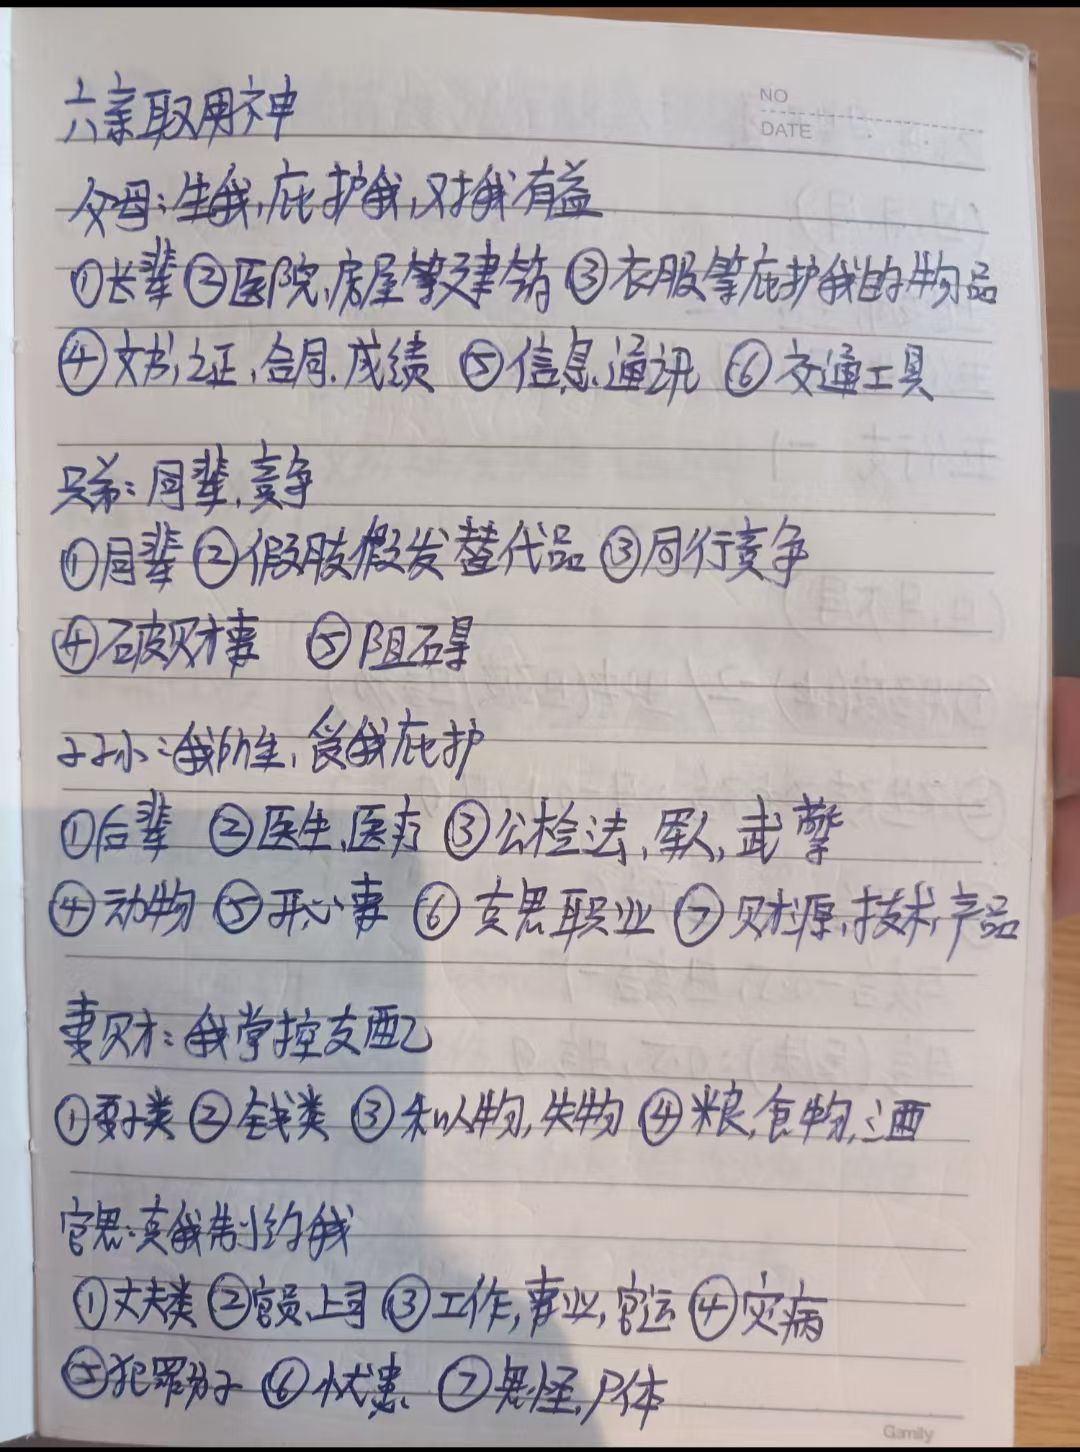 NO
DATE
六亲取用神
父母:生我,庇护我,对我有益
①长辈 ②医院、房屋等建筑 ③衣服等庇护我的物品
④文书,证,合同.成绩 ⑤信息.通讯 ⑥交通工具
兄弟:同辈.竞争
①同辈 ②假肢假发替代品 ③同行竞争
④破财事 ⑤阻碍
子孙:我所生,受我庇护
①后辈 ②医生.医疗 ③公检法,军人,武警
④动物 ⑤开心事 ⑥克鬼职业 ⑦财源,技术,产品
妻财:我掌控支配
①妻子类 ②钱类 ③私人物,失物 ④粮,食物,酒
官鬼:克我制约我
①丈夫类 ②官员,上司 ③工作,事业,官运 ④灾病
⑤犯罪分子 ⑥忧患 ⑦鬼怪,尸体
Gamily